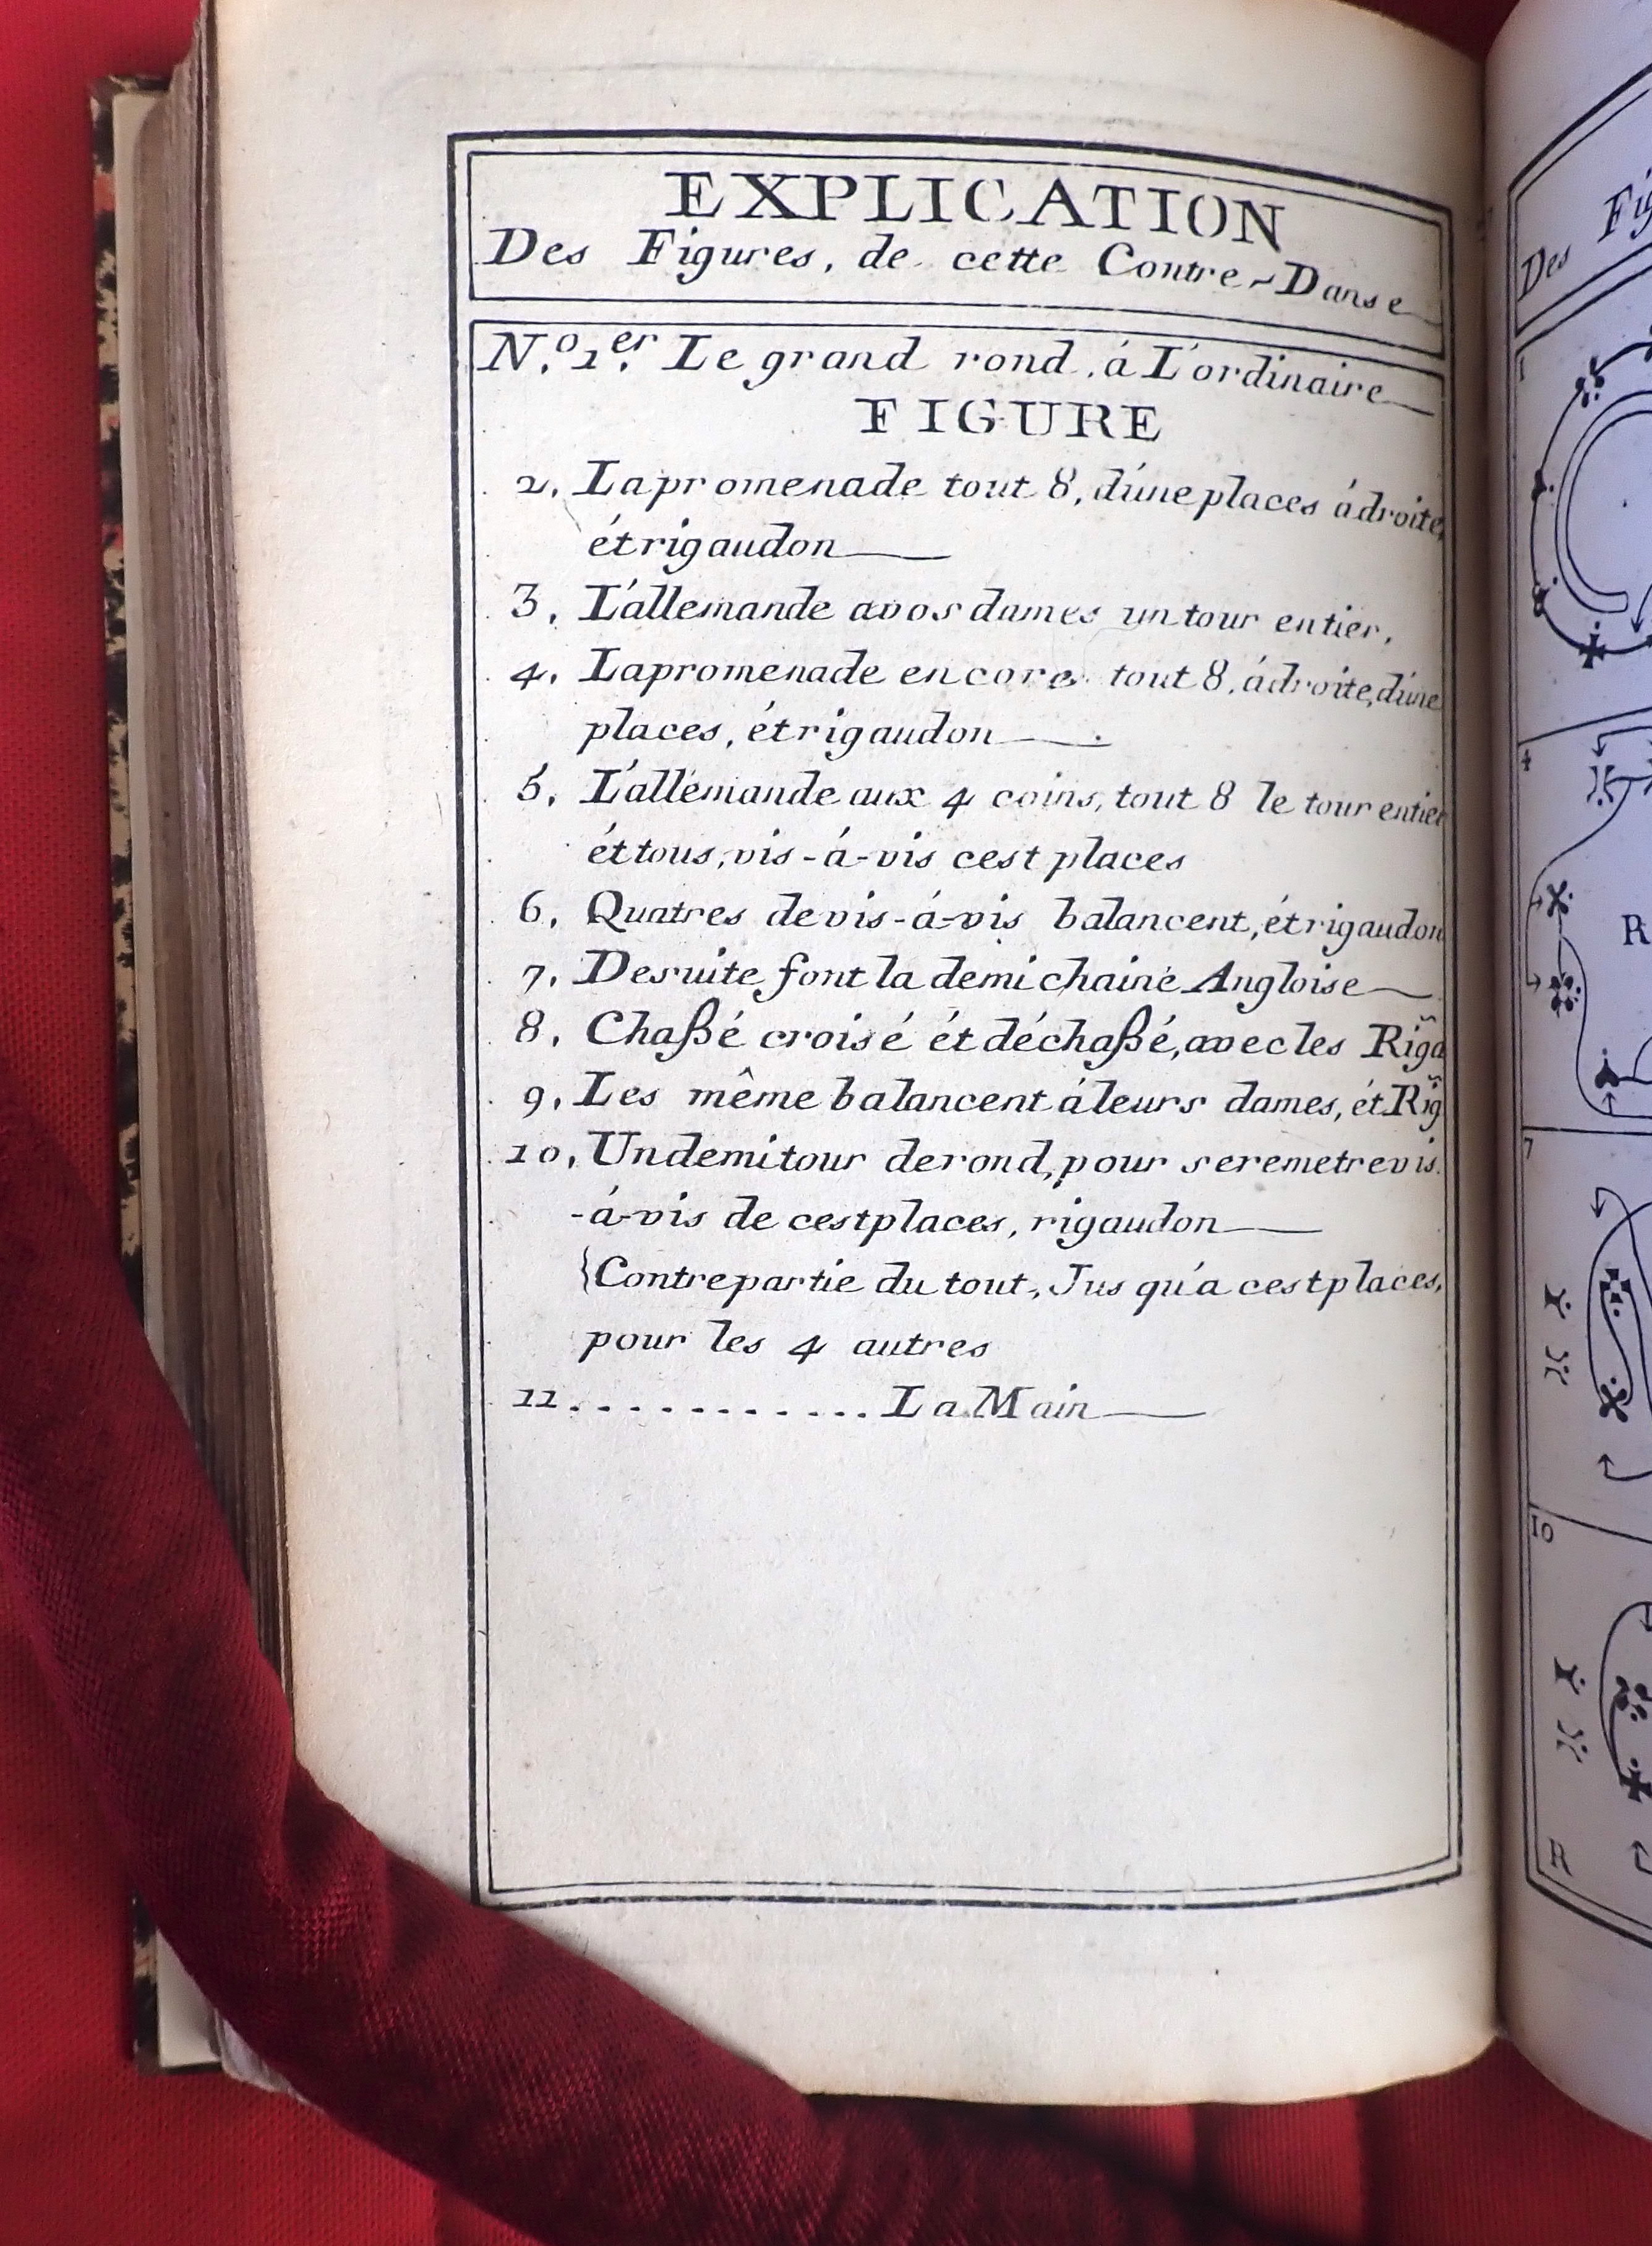 EXPLICATION
Des Figures, de cette Contre-Danse
N.º 1.er Le grand rond, á L'ordinaire
FIGURE
2, La promenade tout 8, d'úne places á droite,
ét rigaudon
3, L'allemande a vos dames un tour entier,
4, La promenade encore tout 8, á droite, d'úne
places, ét rigaudon
5, L'allemande aux 4 coins, tout 8 le tour entier
ét tous, vis-á-vis cest places
6, Quatres de vis-á-vis balancent, ét rigaudon
7, De suite font la demi chaine Angloise
8, Chaßé croisé ét déchaßé, avec les Riga
9, Les même balancent á leurs dames, ét Rig
10, Un demi tour de rond, pour se remetre vis
-á-vis de cest places, rigaudon
{Contrepartie du tout, Jus qu'a cest places,
pour les 4 autres
11. . . . . . . . . . . La Main
Des Fig
1
4
R
7
10
R